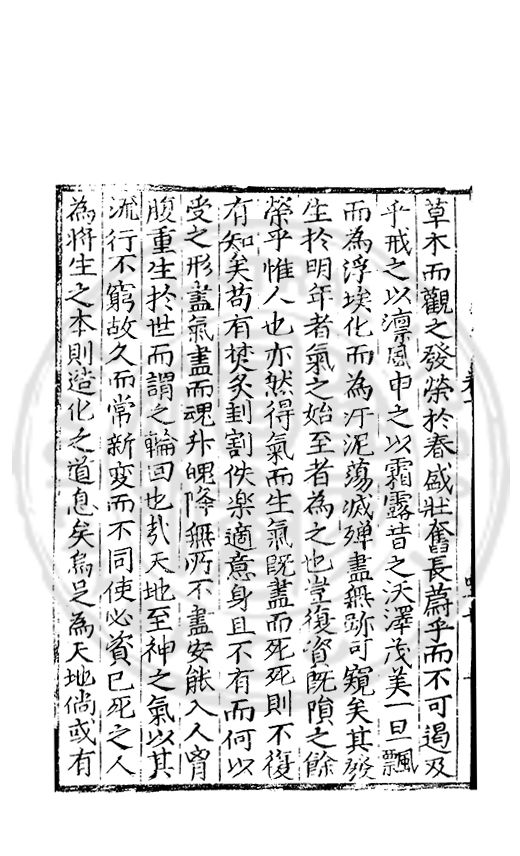 草木而觀之發榮於春盛壯奮長蔚乎而不可遏及
乎戒之以凛風申之以霜露昔之沃澤茂美一旦飄
而為浮埃化而為汙泥蕩滅殫盡無跡可窺矣其發
生於明年者氣之始至者為之也豈復資既隕之餘
榮乎惟人也亦然得氣而生氣既盡而死死則不復
有知矣苟有焚炙刲割佚樂適意身且不有而何以
受之形盡氣盡而魂升魄降無所不盡安能入人胷
腹重生於世而謂之輪回也㢤天地至神之氣以其
流行不窮故久而常新变而不同使必資已死之人
為將生之本則造化之道息矣烏足為天地倘或有